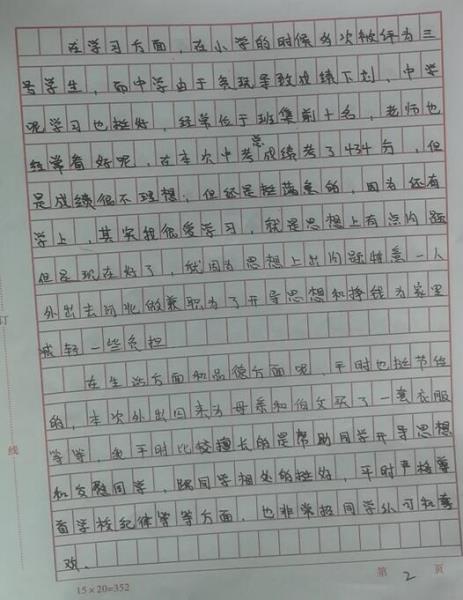 在学习方面，在小学的时候多次被评为三
号学生，而中学由于贪玩导致成绩下划，中学
呢学习也挺好，经常位于班集前十名，老师也
经常看好呢，在本次中考总成绩考了434分，但
是成绩很不理想，但还是挺满意的，因为还有
学上，其实我很爱学习，就是思想上有点问题
但是现在好了，就因为思想上出问题特意一人
外出去河北做兼职为了开导思想和挣钱为家里
减轻一些负担
在生活方面和品德方面呢，平时也挺节俭
的，本次外出回来为母亲和伯父买了一套衣服
等等，我平时比较擅长的是帮助同学开导思想
和安慰同学，跟同学相处的挺好，平时严格尊
着学校纪律等等方面，也非常招同学认可和喜
欢。
订
线
15×20=352
第 2 页